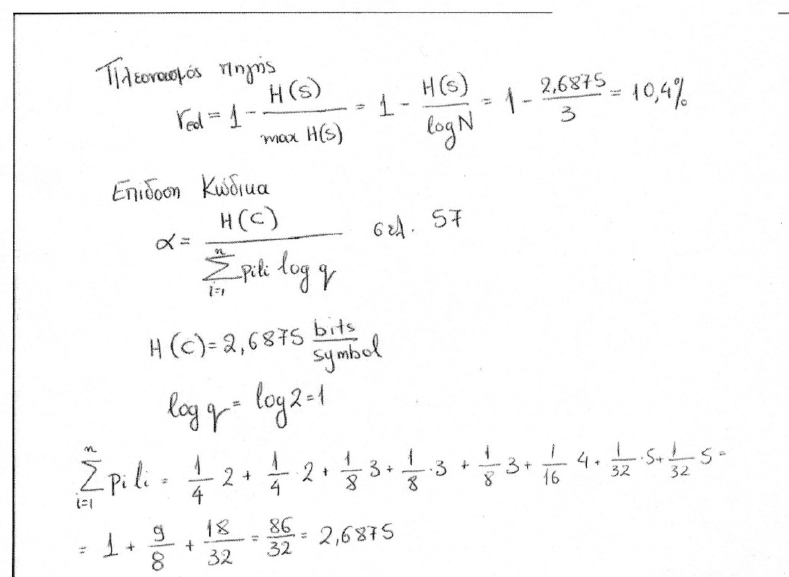 Πλεονασμός πηγής
red = 1 - H(S) / max H(S) = 1 - H(S) / logN = 1 - 2,6875 / 3 = 10,4%
Επίδοση Κώδικα
α = H(C) / Σ_{i=1}^{n} pili log q σελ. 57
H(C) = 2,6875 bits/symbol
log q = log2 = 1
Σ_{i=1}^{n} pili = 1/4 2 + 1/4 · 2 + 1/8 3 + 1/8 · 3 + 1/8 3 + 1/16 4 + 1/32 · 5 + 1/32 5 =
= 1 + 9/8 + 18/32 = 86/32 = 2,6875